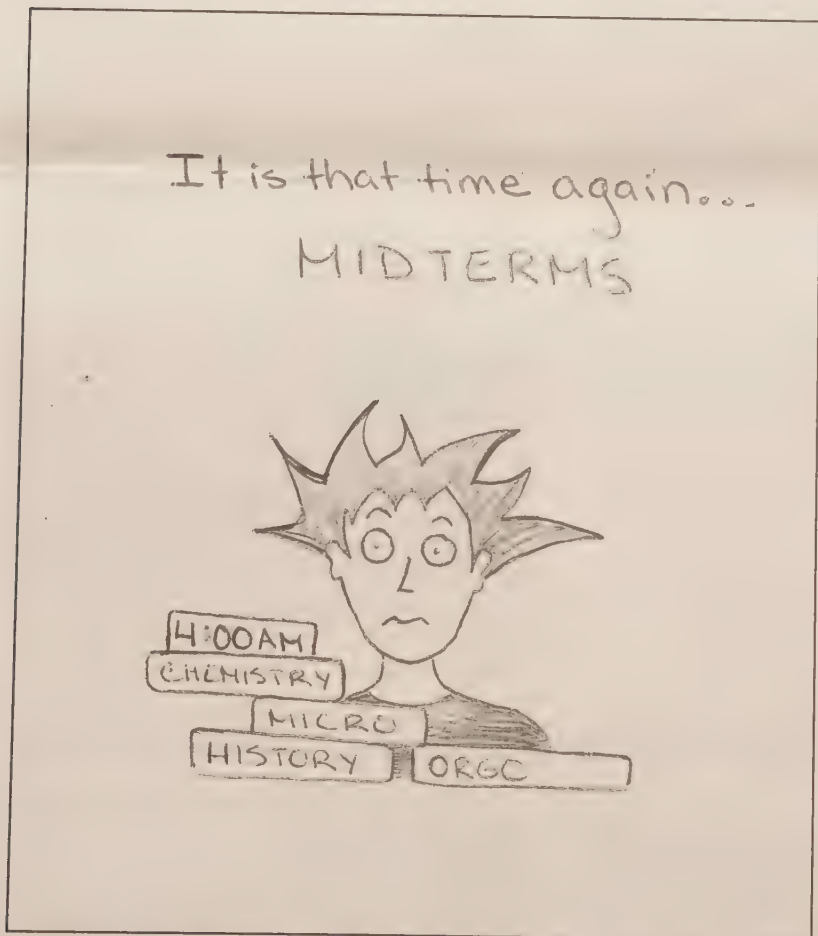 It is that time again...
MIDTERMS
4:00AM
CHEMISTRY
MICRO
HISTORY
ORGO